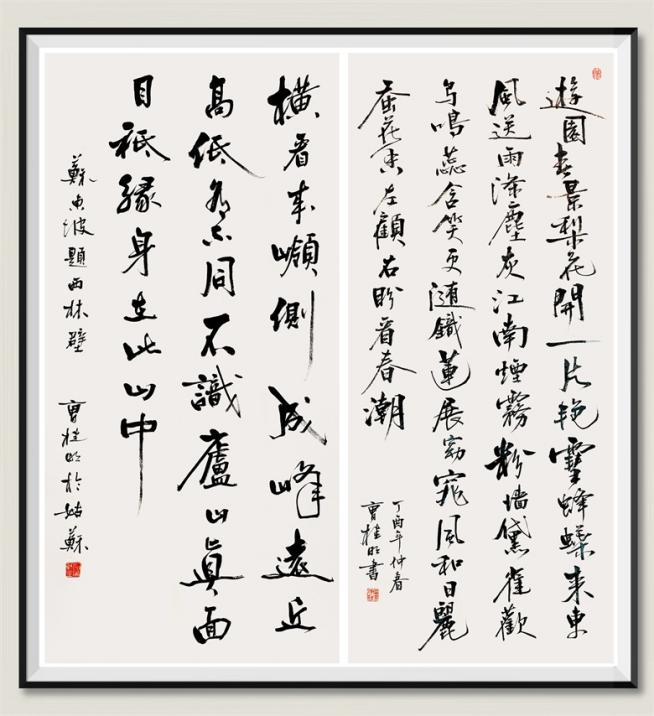 遊園春景梨花開一片艳雪蜂蝶来東
風送雨滌塵灰江南煙霧粉墙黛雀歡
鸟鳴蕊含笑更随蓮展窈窕風和日麗
蚕花香左顧右盼看春潮
丁酉年仲春
曹桂明書
横看成嶺側成峰遠近
高低各不同不識廬山真面
目祗緣身在此山中
蘇東坡題西林壁 曹桂明於姑蘇